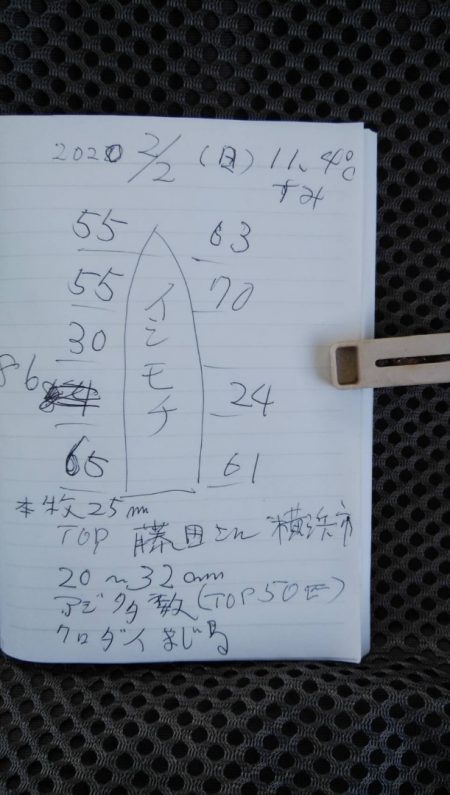 2020 2/2 (日) 11.4℃
すみ
55 63
55 70
30
86
24
65 61
イシモチ
本牧25m
TOP 藤田さん 横浜市
20〜32cm
アジ多数(TOP50匹)
クロダイまじる